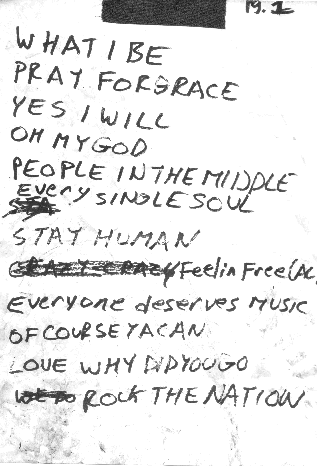 19.1
WHAT I BE
PRAY FORGRACE
YES I WILL
OH MY GOD
PEOPLE IN THE MIDDLE
EVERY SINGLE SOUL
STAY HUMAN
CRAZY CRAZY Feelin Free (AC,
Everyone deserves MUSIC
OF COURSE YA CAN
LOVE WHY DID YOU GO
ROCK THE NATION